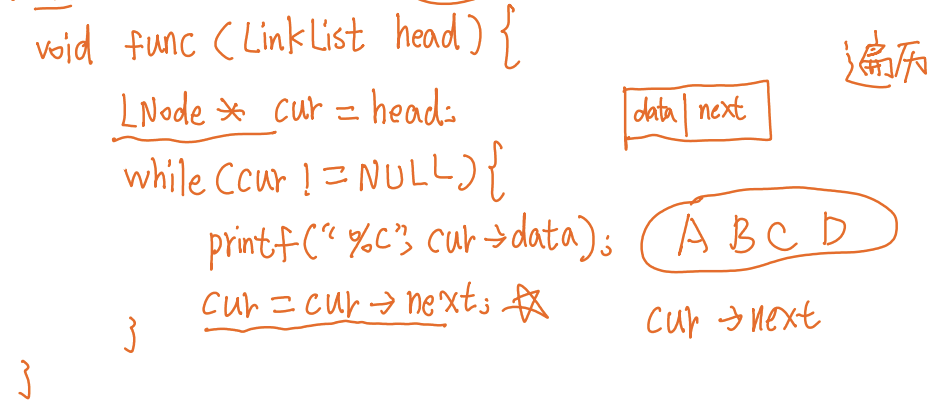 void func (LinkList head) {
遍历
LNode * cur = head;
data | next
while (cur != NULL) {
printf("%c", cur→data);
A B C D
cur = cur → next; ☆
cur → next
}
}